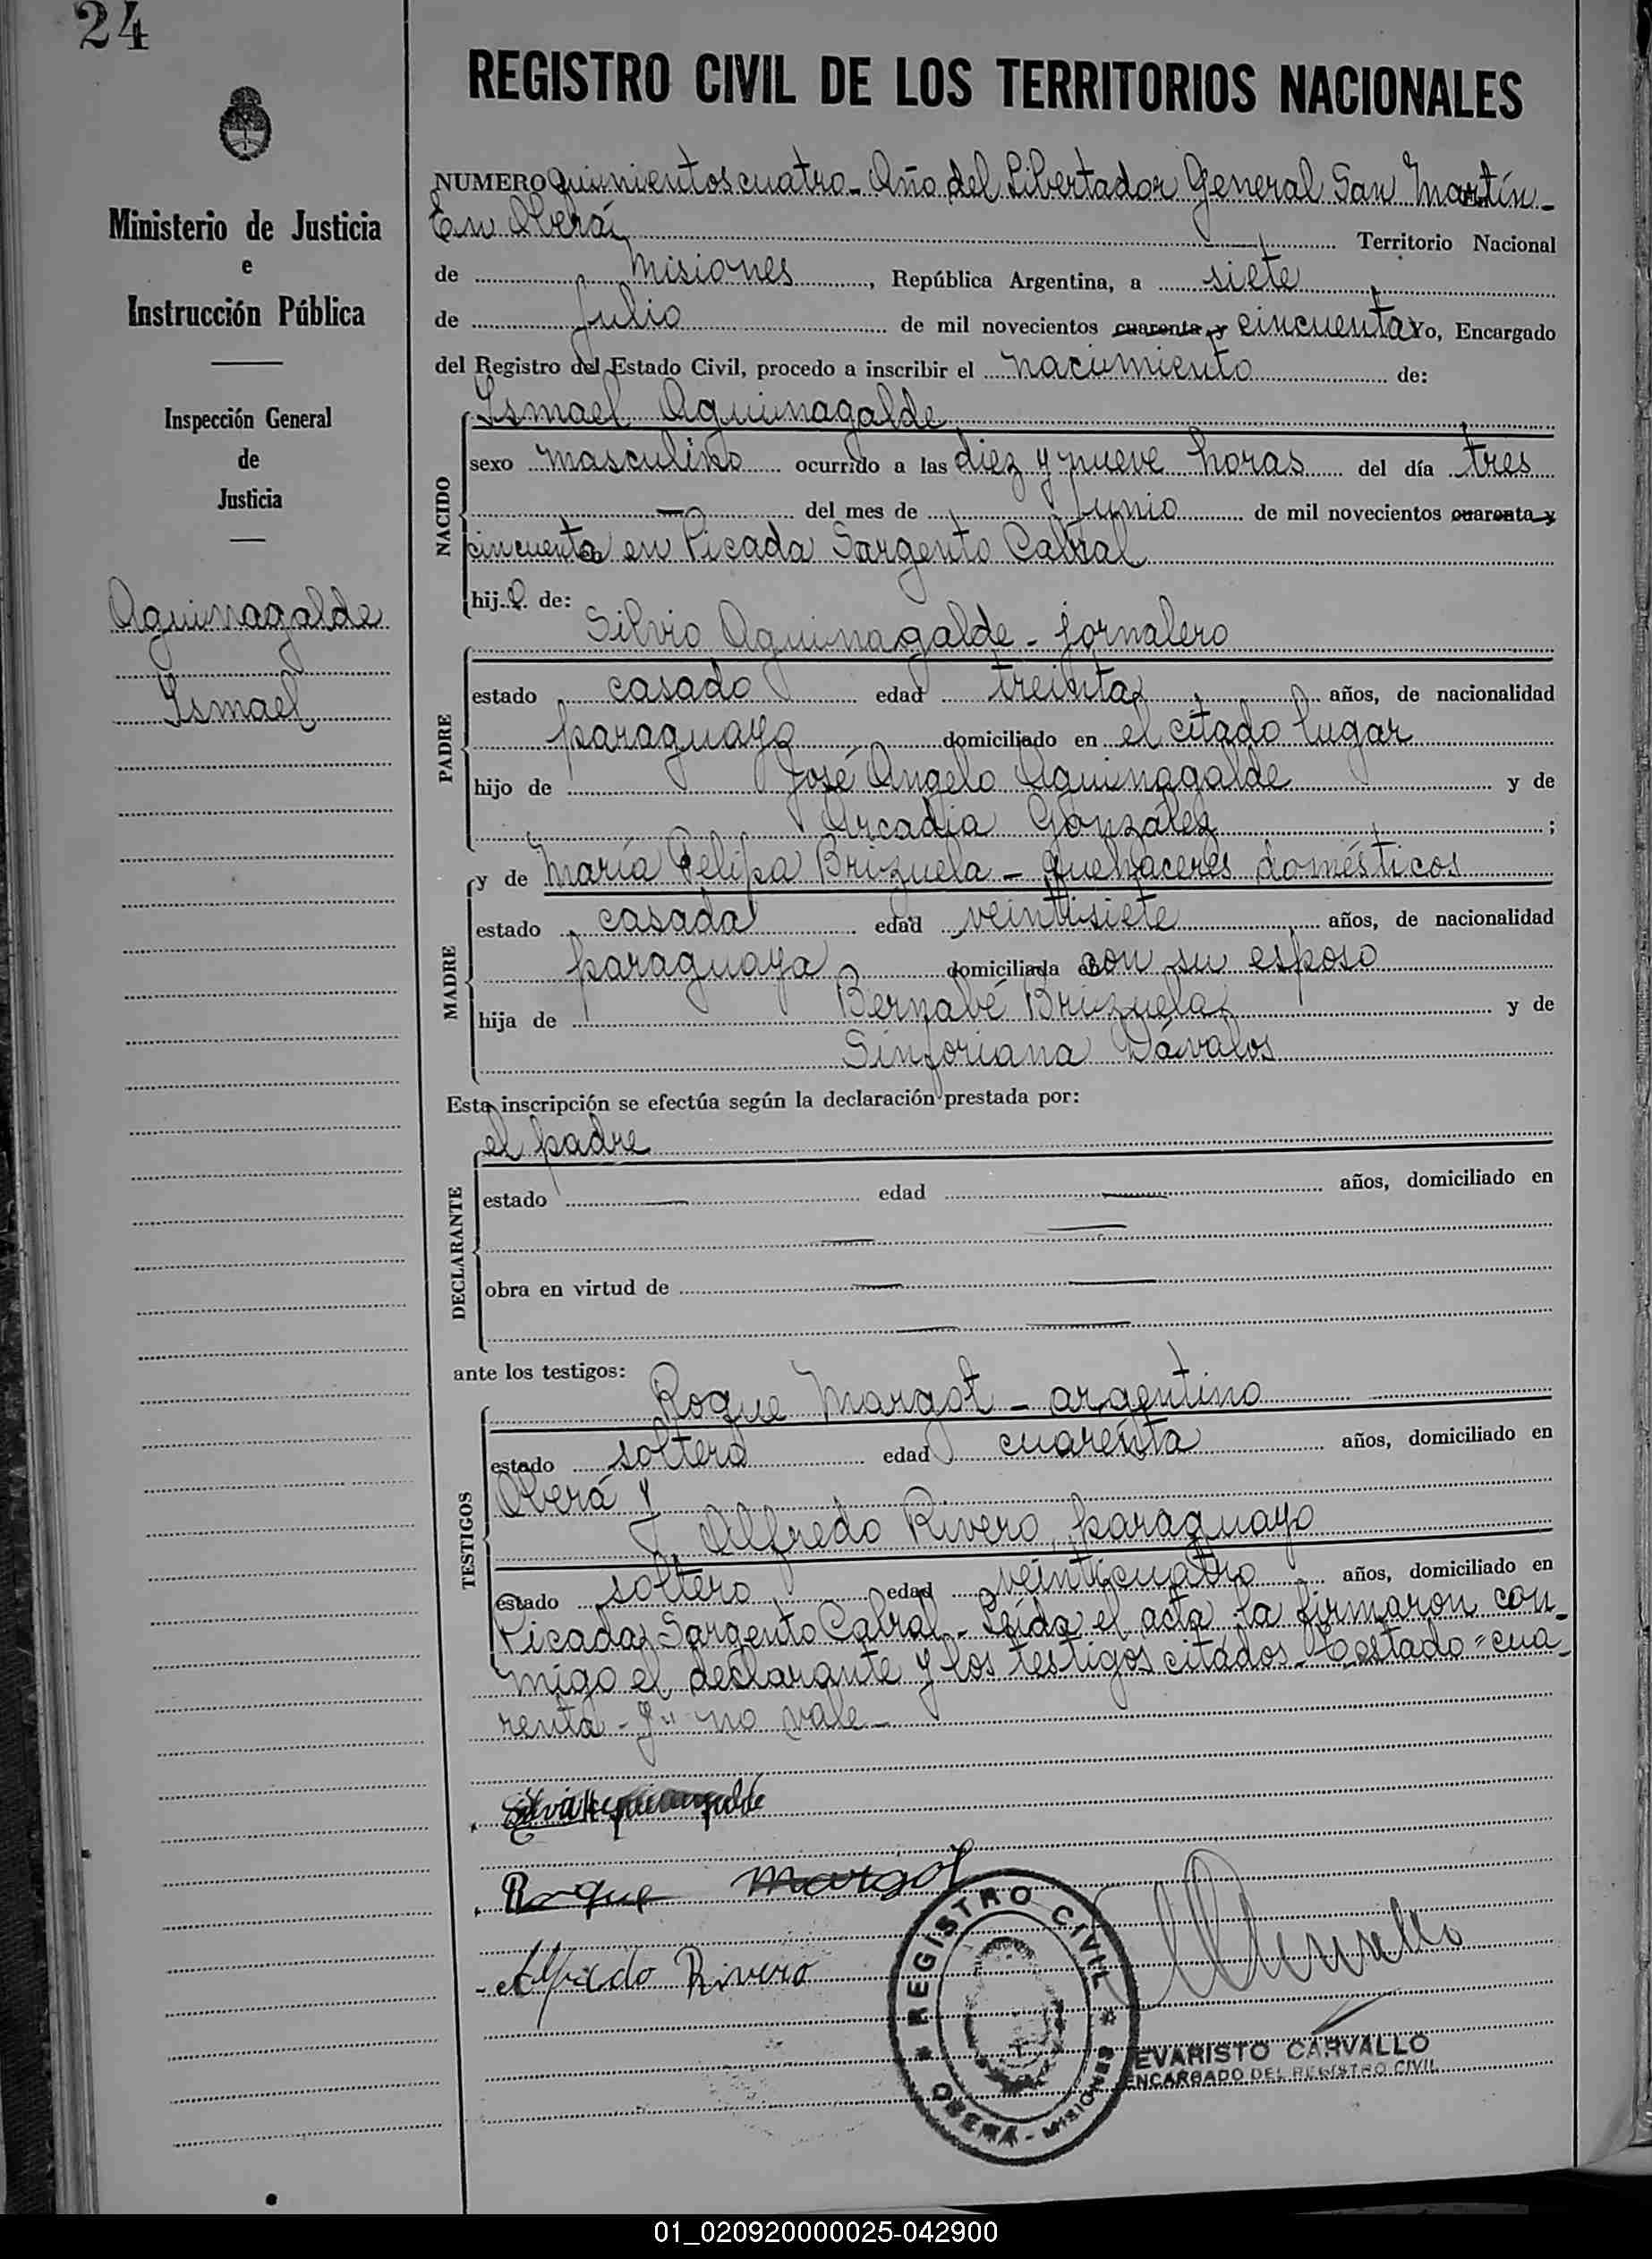 24
REGISTRO CIVIL DE LOS TERRITORIOS NACIONALES
Ministerio de Justicia
e
Instrucción Pública
Inspección General
de
Justicia
Aguinagalde
Ismael
NUMERO quinientos cuatro - Año del Libertador General San Martín -
En Oberá, Territorio Nacional
de Misiones, República Argentina, a siete
de julio de mil novecientos cuarenta y cincuenta Yo, Encargado
del Registro del Estado Civil, procedo a inscribir el nacimiento de:
NACIDO
Ismael Aguinagalde
sexo masculino ocurrido a las diez y nueve horas del día tres
— del mes de junio de mil novecientos cuarenta y
cincuenta en Picada Sargento Cabral
hijo de:
PADRE
Silvio Aguinagalde - jornalero
estado casado edad treinta años, de nacionalidad
paraguaya domiciliado en el citado lugar
hijo de José Angelo Aguinagalde y de
Arcadia González ;
MADRE
y de María Felipa Brizuela - quehaceres domésticos
estado casada edad veintisiete años, de nacionalidad
paraguaya domiciliada con su esposo
hija de Bernabé Brizuela y de
Sinforiana Dávalos
Esta inscripción se efectúa según la declaración prestada por:
DECLARANTE
el padre
estado — edad — años, domiciliado en
— —
obra en virtud de — —
— —
ante los testigos:
TESTIGOS
Roque Margot - argentino
estado soltero edad cuarenta años, domiciliado en
Oberá y
Alfredo Rivero, paraguayo
estado soltero edad veinticuatro años, domiciliado en
Picada Sargento Cabral - Leída el acta la firmaron con-
migo el declarante y los testigos citados - Testado "cua-
renta - y" no vale -
Silvio Aguinagalde
Roque Margot
Alfredo Rivero
REGISTRO CIVIL
OBERÁ - MISIONES
EVARISTO CARVALLO
ENCARGADO DEL REGISTRO CIVIL
01_020920000025-042900